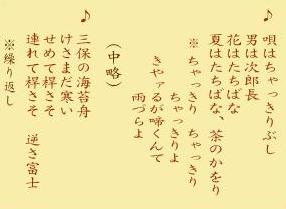 ♪ 唄はちゃっきりぶし
男は次郎長
花はたちばな
夏はたちばな、茶のかをり
※ ちゃっきり ちゃっきり
ちゃっきりよ
きやァるが啼くんて
雨づらよ
（中略）
♪ 三保の海苔舟
けさまだ寒い
せめて桴さそ
連れて桴さそ 逆さ富士
※繰り返し